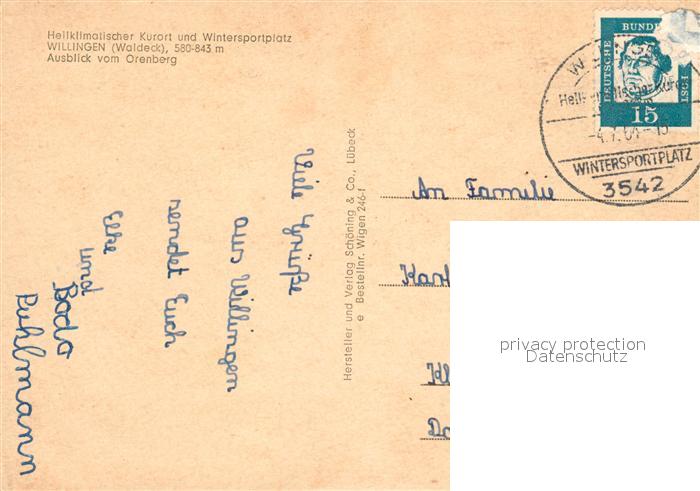 Heilklimatischer Kurort und Wintersportplatz
WILLINGEN (Waldeck), 580-843 m
Ausblick vom Orenberg
Viele Grüße
aus Willingen
sendet Euch
Elke
und
Bodo
Ruhlmann
Hersteller und Verlag Schöning & Co., Lübeck
e Bestellnr. Wigen 246-f
DEUTSCHE
BUNDES
POST
15
Heilklimatischer Kurort
WINTERSPORTPLATZ
3542
An Familie
Karl
privacy protection
Datenschutz
Kl
Do